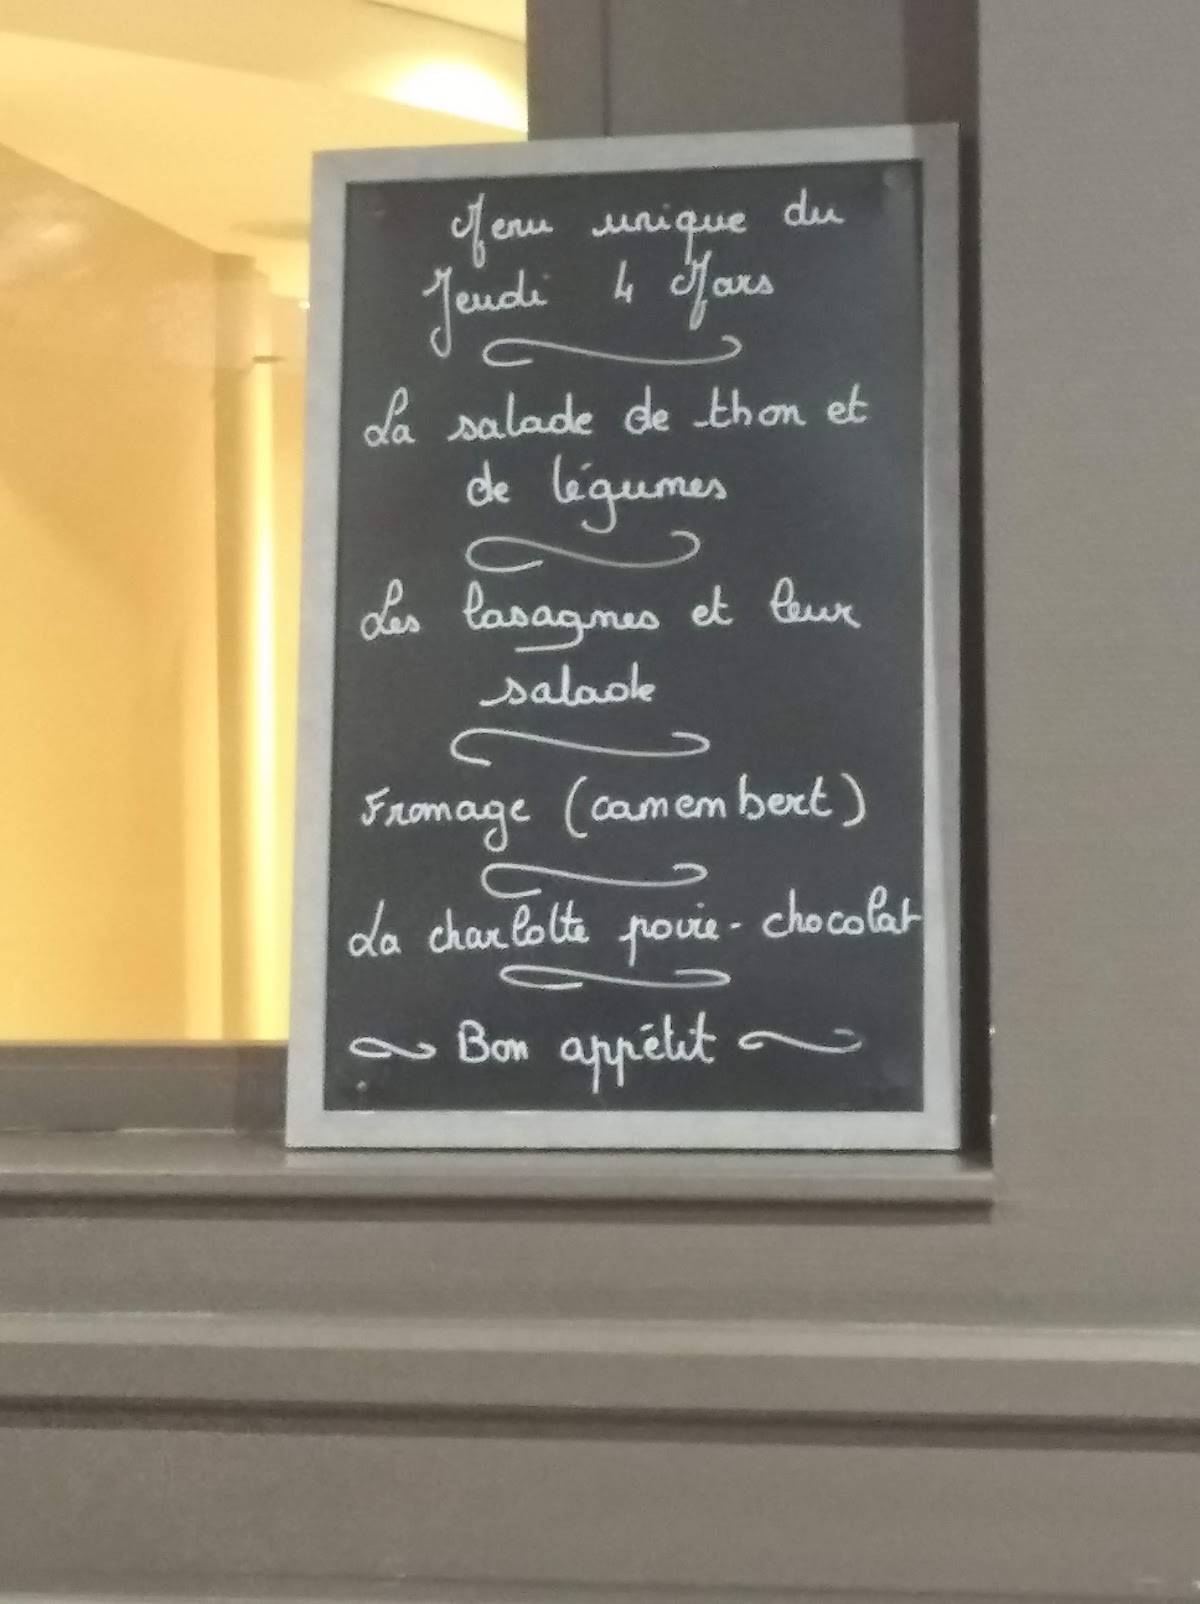 Menu unique du
Jeudi 4 Mars
La salade de thon et
de légumes
Les lasagnes et leur
salade
Fromage (camembert)
La charlotte poire-chocolat
Bon appétit